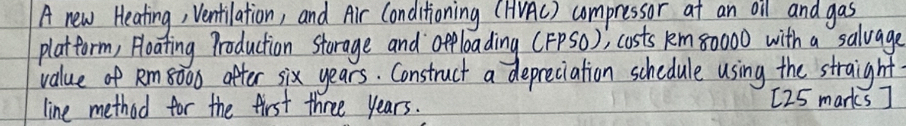 A new Heating, Ventilation, and Air Conditioning (HVAC) compressor at an oil and gas
platform, Floating Production Storage and Offloading (FPSO), costs RM 80000 with a salvage
value of RM 8000 after six years. Construct a depreciation schedule using the straight-
line method for the first three years. [25 marks]